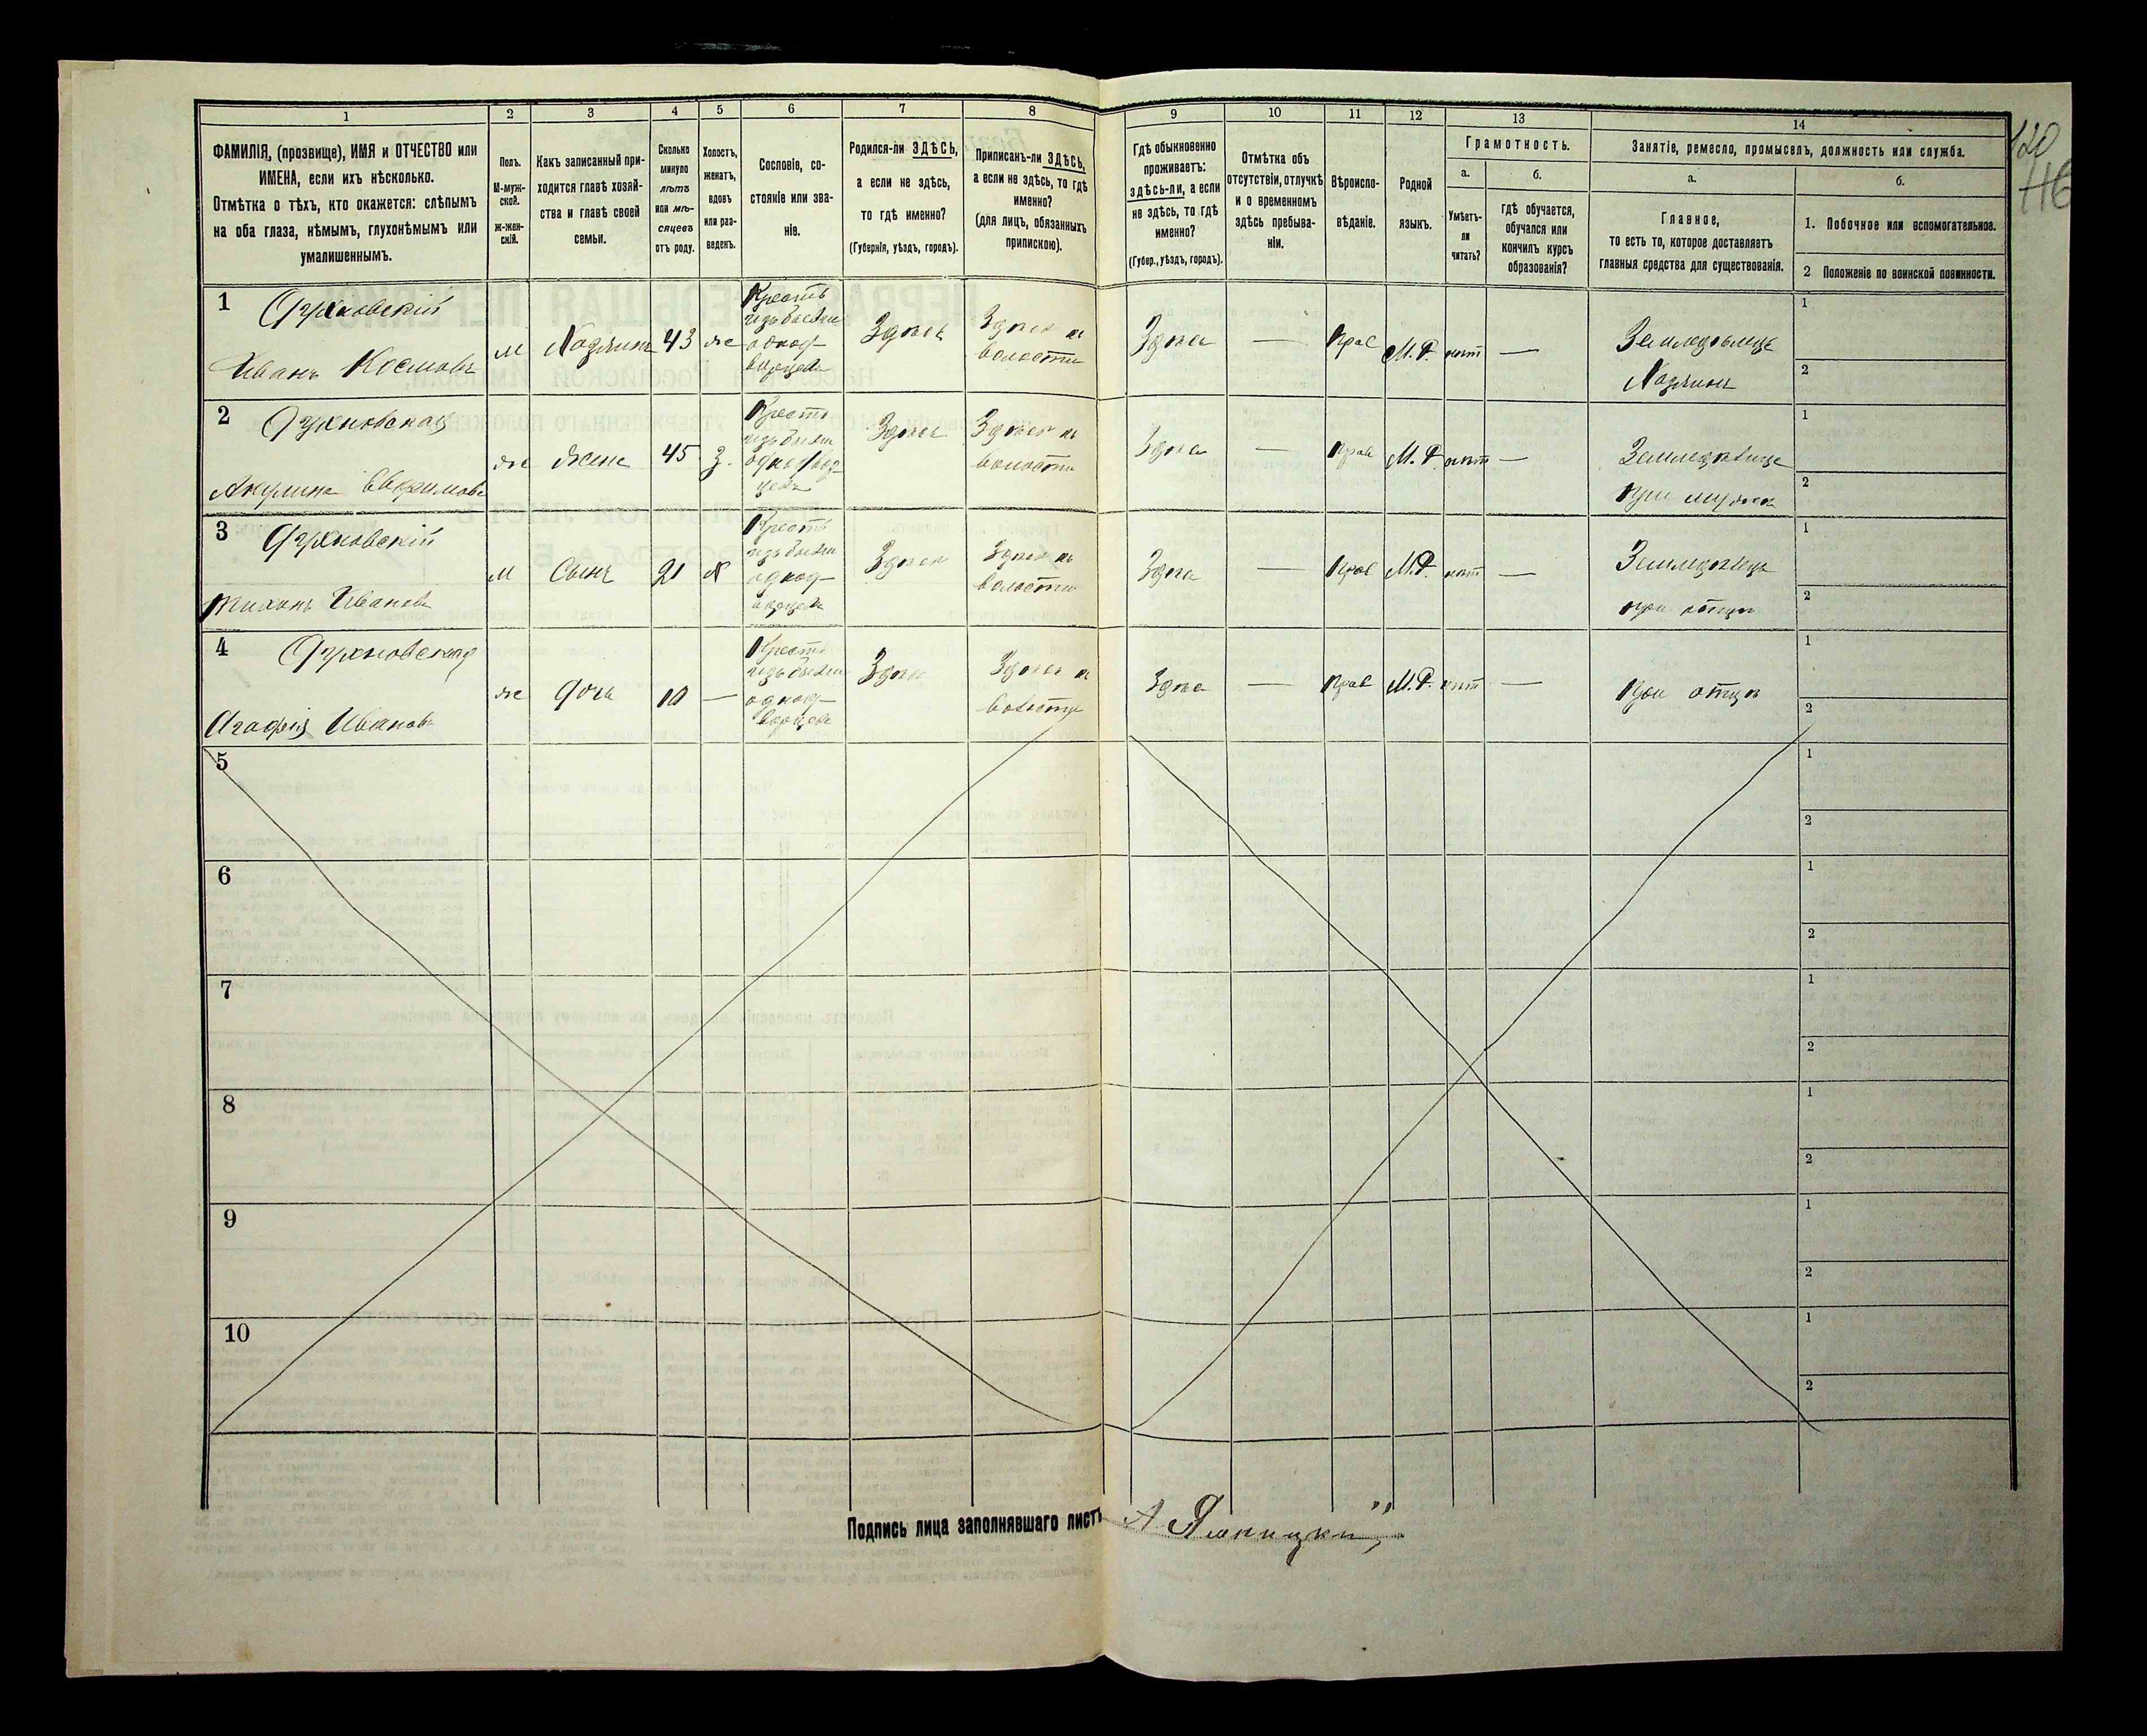 1 2 3 4 5 6 7 8 9 10 11 12 13 14
ФАМИЛІЯ, (прозвище), ИМЯ и ОТЧЕСТВО или
ИМЕНА, если ихъ нѣсколько.
Отмѣтка о тѣхъ, кто окажется: слѣпымъ
на оба глаза, нѣмымъ, глухонѣмымъ или
умалишеннымъ.
Полъ.
М-муж-
ской.
ж-жен-
скій.
Какъ записанный при-
ходится главѣ хозяй-
ства и главѣ своей
семьи.
Сколько
минуло
лѣтъ
или мѣ-
сяцевъ
отъ роду.
Холостъ,
женатъ,
вдовъ
или раз-
веденъ.
Сословіе, со-
стояніе или зва-
ніе.
Родился-ли ЗДѢСЬ,
а если не здѣсь,
то гдѣ именно?
(Губернія, уѣздъ, городъ).
Приписанъ-ли ЗДѢСЬ,
а если не здѣсь, то гдѣ
именно?
(для лицъ, обязанныхъ
припискою).
Гдѣ обыкновенно
проживаетъ:
здѣсь-ли, а если
не здѣсь, то гдѣ
именно?
(Губер., уѣздъ, городъ).
Отмѣтка объ
отсутствіи, отлучкѣ
и о временномъ
здѣсь пребыва-
ніи.
Вѣроиспо-
вѣданіе.
Родной
языкъ.
Грамотность.
а.
Умѣетъ-
ли
читать?
б.
гдѣ обучается,
обучался или
кончилъ курсъ
образованія?
Занятіе, ремесло, промыселъ, должность или служба.
а.
Главное,
то есть то, которое доставляетъ
главныя средства для существованія.
б.
1. Побочное или вспомогательное.
2 Положеніе по воинской повинности.
120
116
1
Иванъ Космовъ
м Хозяинъ 43 же
Крестъ
изъ бывш
однод-
ворцевъ
Здѣсь
Здѣсь въ
волости
Здѣсь — Прав М.Р. нѣт —
Земледѣлецъ
Хозяинъ
1
2
2
Акулина Евфимова
же жена 45 З.
Крестъ
изъ бывш
однодвор
цевъ
Здѣсь
Здѣсь въ
волости
Здѣсь — Прав М.Р. нѣт —
Земледѣлица
при мужѣ
1
2
3
Тихонъ Ивановъ
м Сынъ 21 Х
Крестъ
изъ бывш
однод-
ворцевъ
Здѣсь
Здѣсь въ
волости
Здѣсь — Прав М.Р. нѣт —
Земледѣлецъ
при отцѣ
1
2
4
Агафія Иванов
же дочь 10 —
Крестъ
изъ бывш
однод-
ворцевъ
Здѣсь
Здѣсь въ
волости
Здѣсь — Прав М.Р. нѣт —
при отцѣ
1
2
5
1
2
6
1
2
7
1
2
8
1
2
9
1
2
10
1
2
Подпись лица заполнявшаго листъ